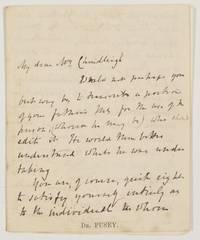 My dear Mrs Chudleigh
Would not perhaps you
but very by to transcribe a portion
of your father's for the use of the
person (whoever he may be) who should
edit it. He would then better
understand what he was under
taking.
You are, of course, quite right
to satisfy yourself entirely as
to the individual to whom
DR. PUSEY.